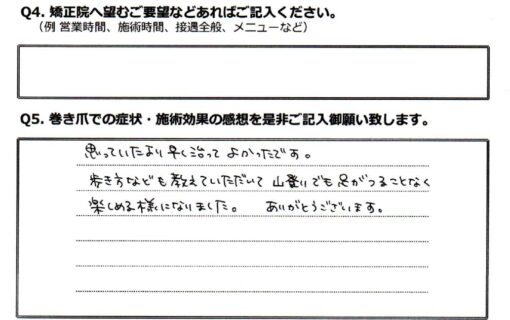 Q4. 矯正院へ望むご要望などあればご記入ください。
（例 営業時間、施術時間、接遇全般、メニューなど）
Q5. 巻き爪での症状・施術効果の感想を是非ご記入御願い致します。
思っていたより早く治って よかったです。
歩き方なども教えていただいて 山登りでも足がつることなく
楽しめる様になりました。 ありがとうございます。